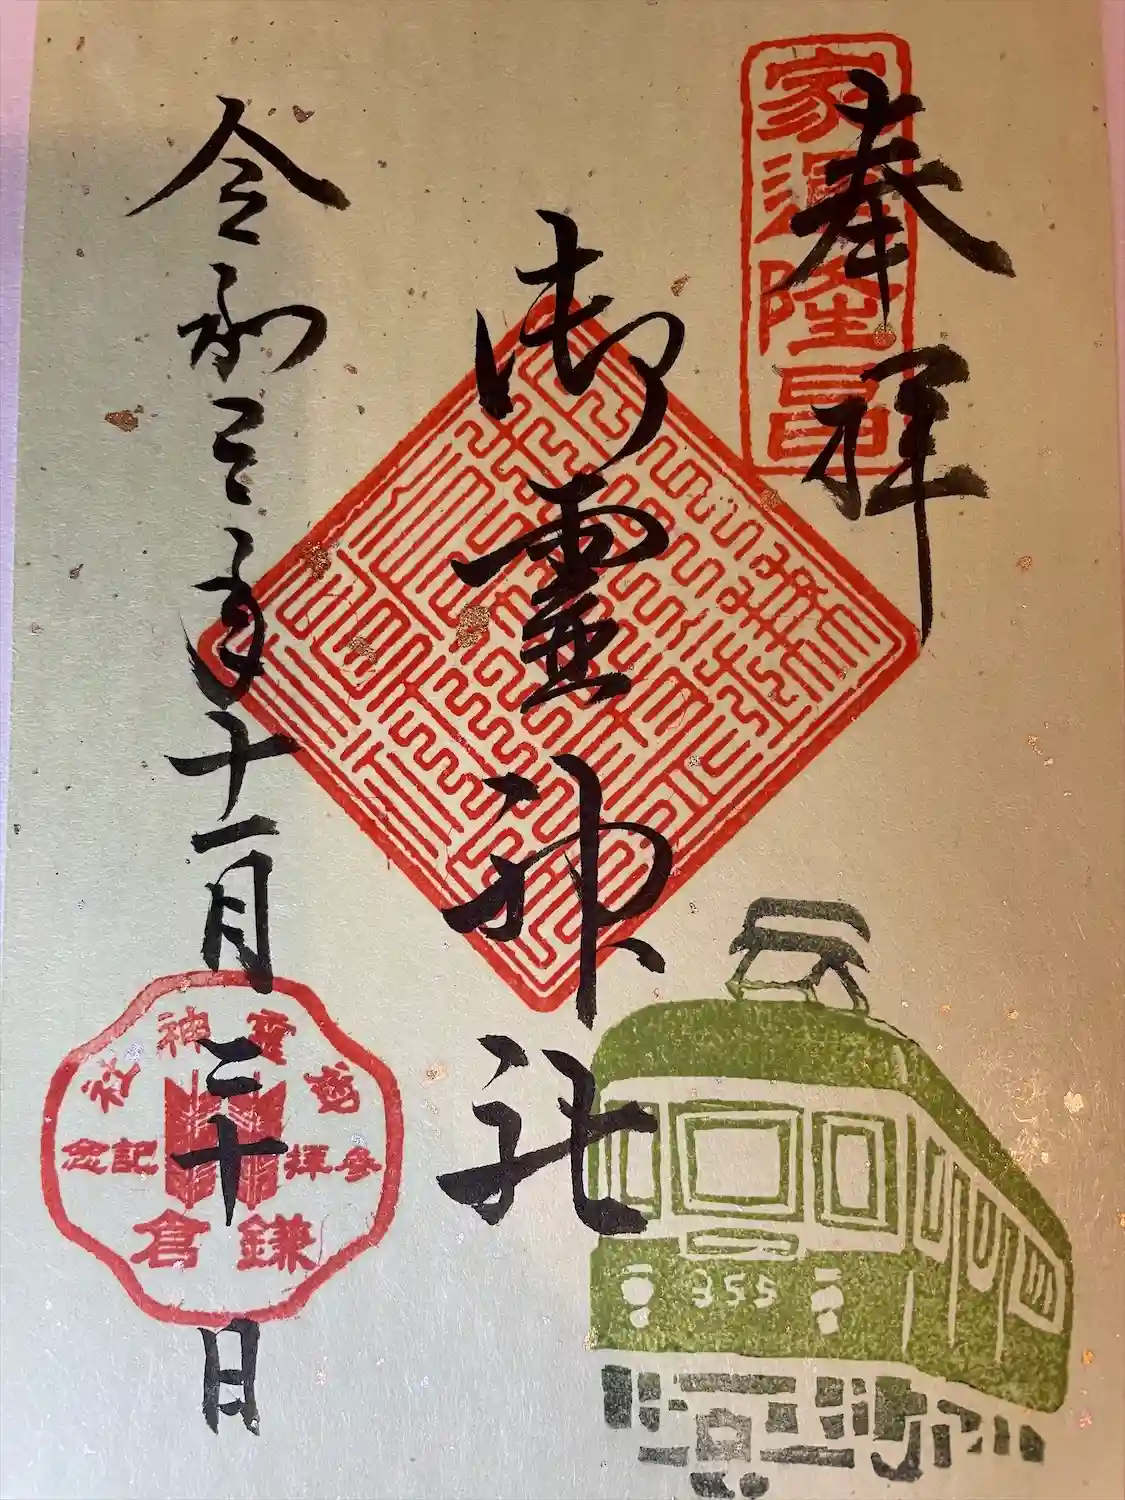 奉拝
家運隆昌
御霊神社
令和三年十一月三十日
御霊神社
参拝記念
鎌倉
355